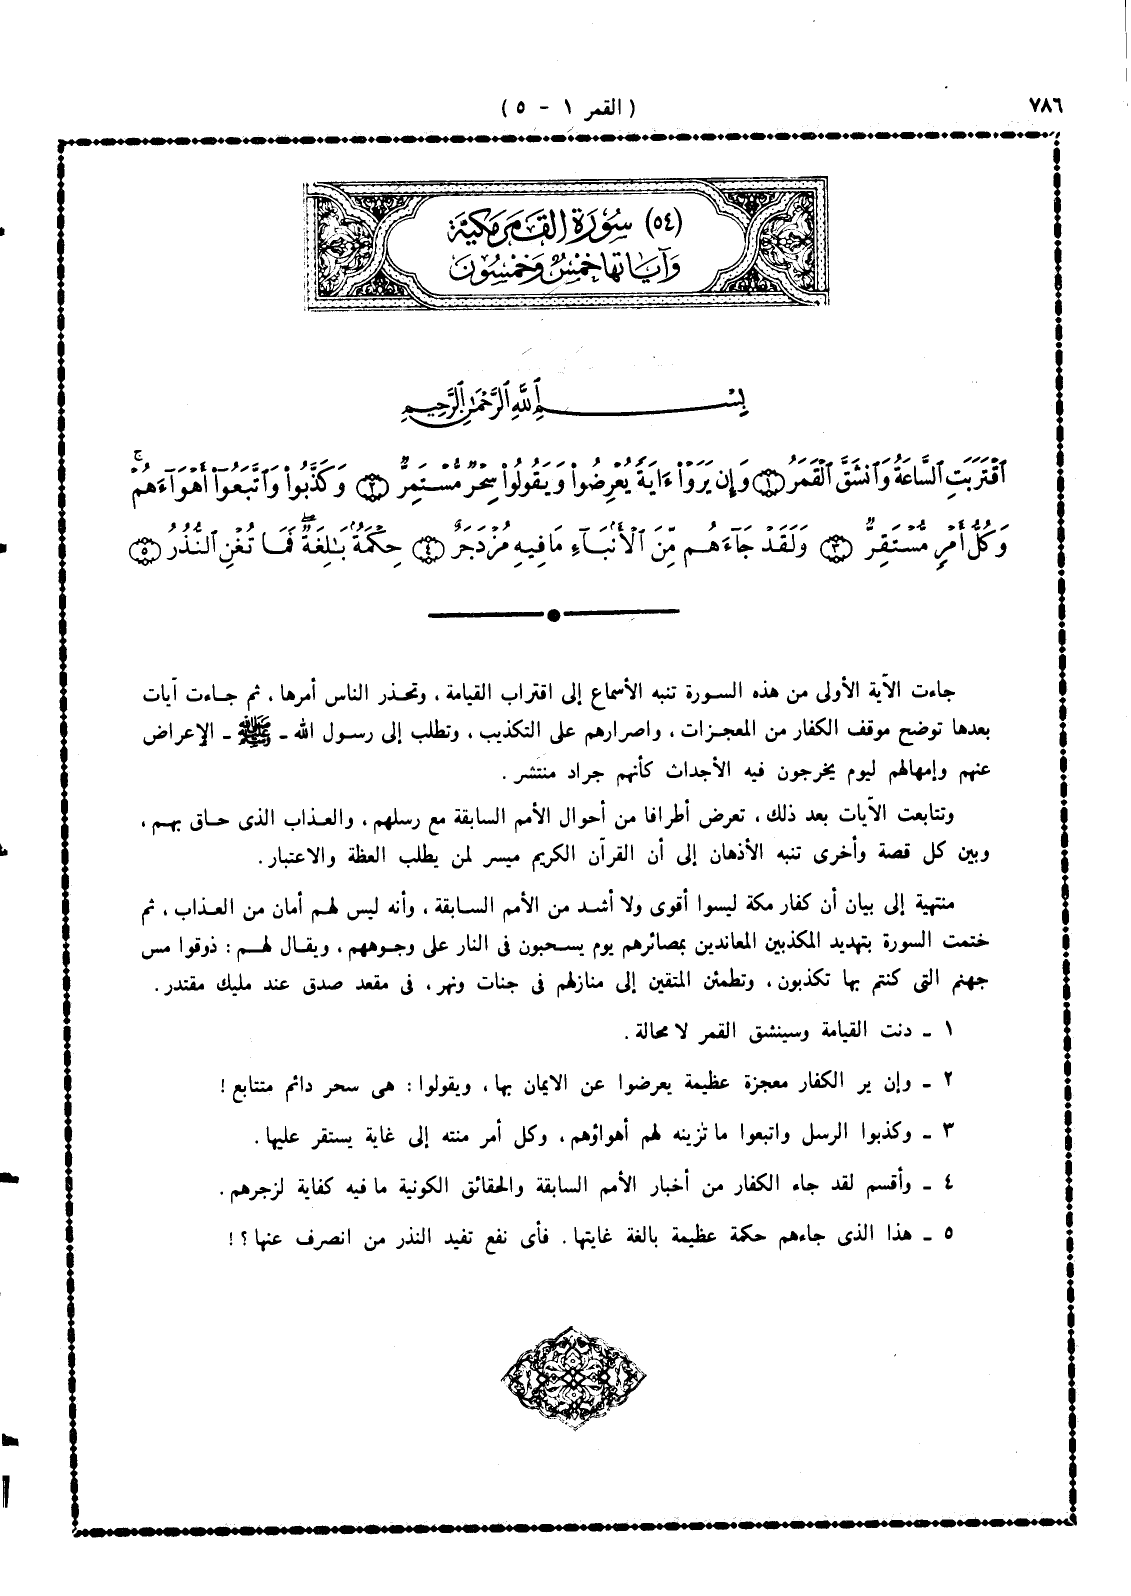 ٧٨٦
( القمر ١ - ٥ )
(٥٤) سُورَةُ القَمَر مَكيَّة
وَآيَاتُهَا خَمْسٌ وَخَمْسُونَ
بِسْمِ اللَّهِ الرَّحْمَٰنِ الرَّحِيمِ
ٱقْتَرَبَتِ ٱلسَّاعَةُ وَٱنشَقَّ ٱلْقَمَرُ ۝١ وَإِن يَرَوْا۟ ءَايَةً يُعْرِضُوا۟ وَيَقُولُوا۟ سِحْرٌ مُّسْتَمِرٌّ ۝٢ وَكَذَّبُوا۟ وَٱتَّبَعُوٓا۟ أَهْوَآءَهُمْ ۚ
وَكُلُّ أَمْرٍ مُّسْتَقِرٌّ ۝٣ وَلَقَدْ جَآءَهُم مِّنَ ٱلْأَنۢبَآءِ مَا فِيهِ مُزْدَجَرٌ ۝٤ حِكْمَةٌۢ بَٰلِغَةٌ ۖ فَمَا تُغْنِ ٱلنُّذُرُ ۝٥
جاءت الآية الأولى من هذه السورة تنبه الأسماع إلى اقتراب القيامة ، وتحذر الناس أمرها ، ثم جاءت آيات
بعدها توضح موقف الكفار من المعجزات ، واصرارهم على التكذيب ، وتطلب إلى رسول الله ـ ﷺ ـ الإعراض
عنهم وإمهالهم ليوم يخرجون فيه الأجداث كأنهم جراد منتشر .
وتتابعت الآيات بعد ذلك ، تعرض أطرافا من أحوال الأمم السابقة مع رسلهم ، والعذاب الذى حاق بهم ،
وبين كل قصة وأخرى تنبه الأذهان إلى أن القرآن الكريم ميسر لمن يطلب العظة والاعتبار .
منتهية إلى بيان أن كفار مكة ليسوا أقوى ولا أشد من الأمم السابقة ، وأنه ليس لهم أمان من العذاب ، ثم
ختمت السورة بتهديد المكذبين المعاندين بمصائرهم يوم يسحبون فى النار على وجوههم ، ويقال لهم : ذوقوا مس
جهنم التى كنتم بها تكذبون ، وتطمئن المتقين إلى منازلهم فى جنات ونهر ، فى مقعد صدق عند مليك مقتدر .
١ ـ دنت القيامة وسينشق القمر لا محالة .
٢ ـ وإن ير الكفار معجزة عظيمة يعرضوا عن الايمان بها ، ويقولوا : هى سحر دائم متتابع !
٣ ـ وكذبوا الرسل واتبعوا ما تزينه لهم أهواؤهم ، وكل أمر منته إلى غاية يستقر عليها .
٤ ـ وأقسم لقد جاء الكفار من أخبار الأمم السابقة والحقائق الكونية ما فيه كفاية لزجرهم .
٥ ـ هذا الذى جاءهم حكمة عظيمة بالغة غايتها . فأى نفع تفيد النذر من انصرف عنها ؟ !